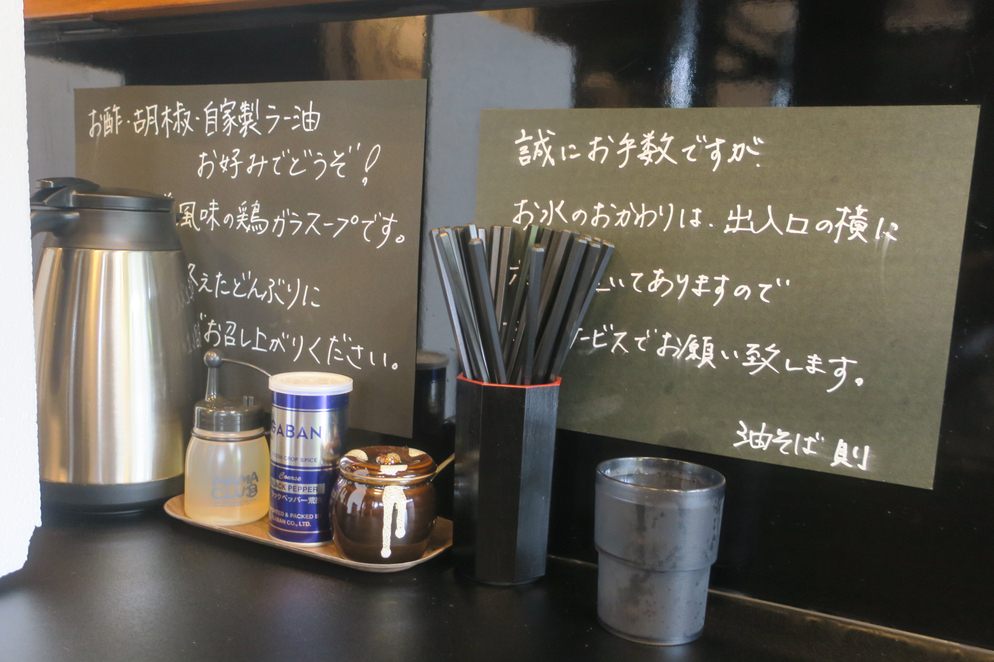 お酢・胡椒・自家製ラー油
お好みでどうぞ!
風味の鶏ガラスープです。
えたどんぶりに
お召し上がりください。
誠にお手数ですが、
お水のおかわりは、出入口の横に
いてありますので
ービスでお願い致します。
油そば 則
GABAN
Coarse
BLACK PEPPER
ブラックペッパー荒挽
CO., LTD.